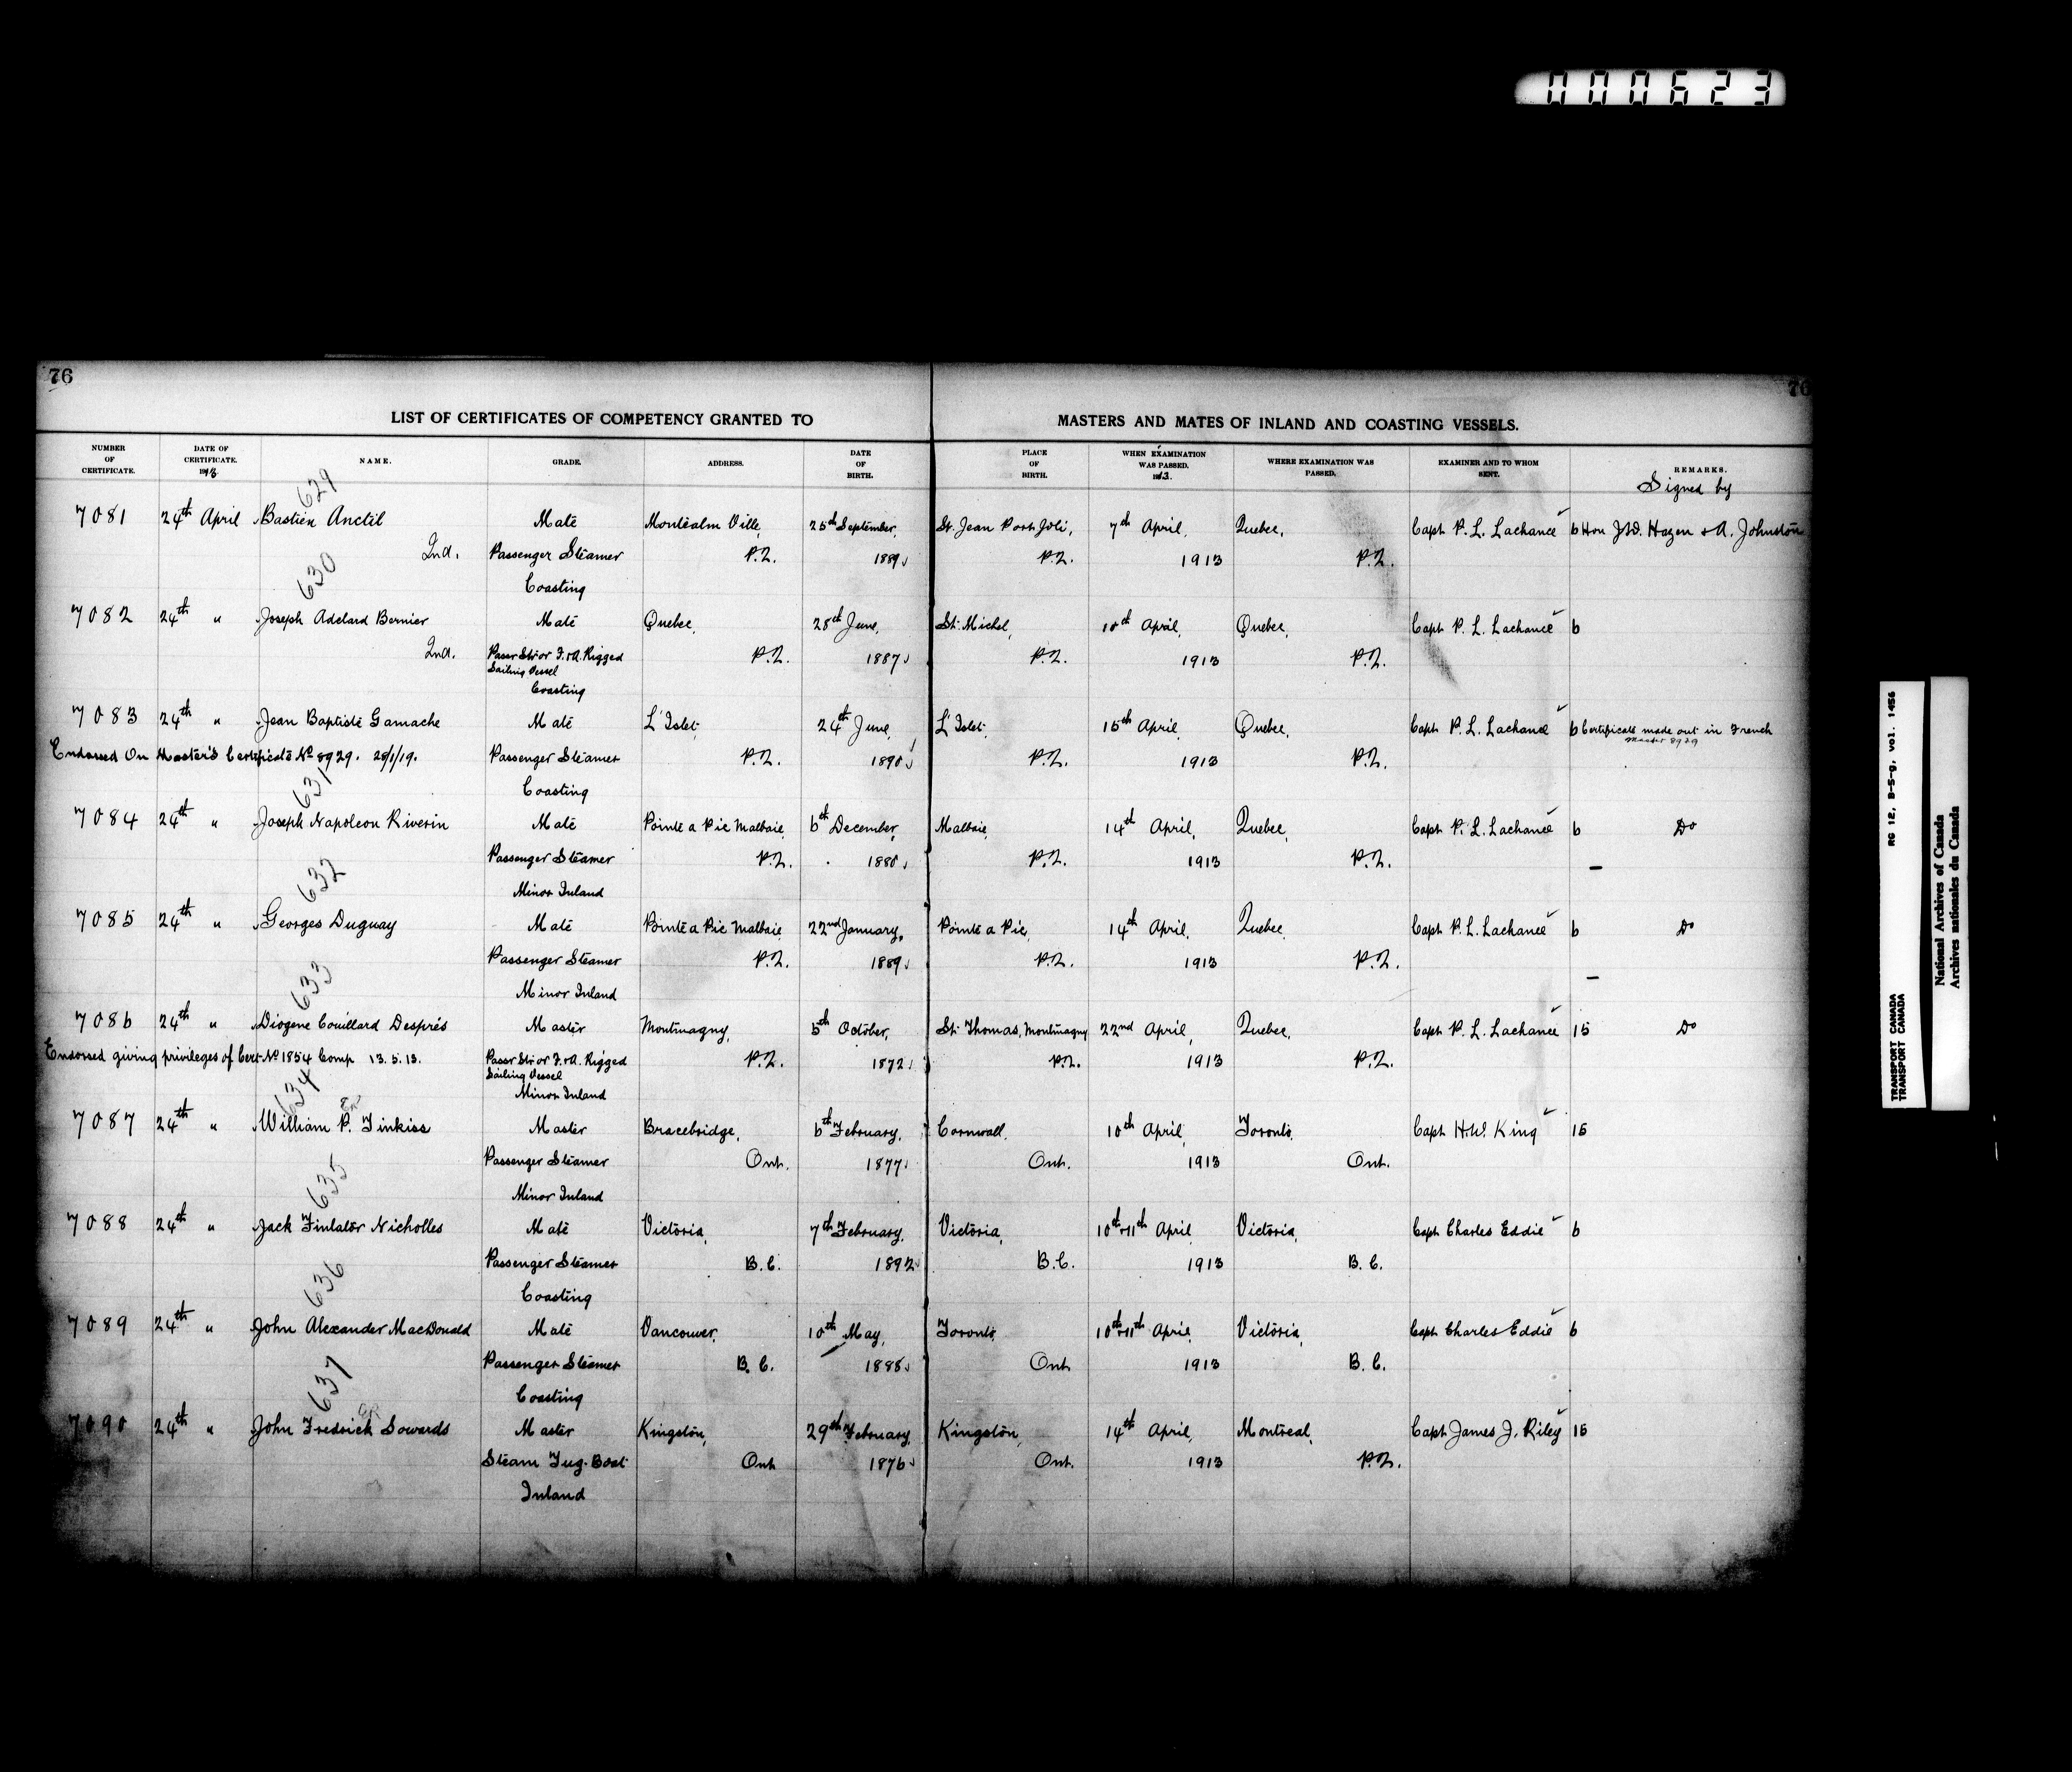 000623
76
76
LIST OF CERTIFICATES OF COMPETENCY GRANTED TO MASTERS AND MATES OF INLAND AND COASTING VESSELS.
NUMBER OF CERTIFICATE. DATE OF CERTIFICATE. 1913 NAME. GRADE. ADDRESS. DATE OF BIRTH. PLACE OF BIRTH. WHEN EXAMINATION WAS PASSED. 1913. WHERE EXAMINATION WAS PASSED. EXAMINER AND TO WHOM SENT. REMARKS.
Signed by
629
7081 24th April Bastien Anctil Mate Montcalm Ville, 25th September, St. Jean Port Joli, 7th April, Quebec, Capt P. L. Lachance 6 Hon J.D. Hazen & A. Johnston
2nd. Passenger Steamer P.Q. 1889 P.Q. 1913 P.Q.
630
Coasting
7082 24th " Joseph Adelard Bernier Mate Quebec, 28th June, St. Michel, 10th April, Quebec, Capt P. L. Lachance 6
2nd. Passr Str or F.&A. Rigged P.Q. 1887 P.Q. 1913 P.Q.
Sailing Vessel
Coasting
7083 24th " Jean Baptiste Gamache Mate L'Islet, 24th June, L'Islet, 15th April, Quebec, Capt P. L. Lachance 6 Certificate made out in French
Master 8929
Endorsed On Master's Certificate No 8929. 28/1/19. Passenger Steamer P.Q. 1890 P.Q. 1913 P.Q.
631
Coasting
7084 24th " Joseph Napoleon Riverin Mate Pointe a Pic Malbaie, 6th December, Malbaie, 14th April, Quebec, Capt P. L. Lachance 6 Do
Passenger Steamer P.Q. 1880 P.Q. 1913 P.Q.
632
Minor Inland
7085 24th " Georges Duguay Mate Pointe a Pic Malbaie, 22nd January, Pointe a Pic, 14th April, Quebec, Capt P. L. Lachance 6 Do
Passenger Steamer P.Q. 1889 P.Q. 1913 P.Q.
633
Minor Inland
7086 24th " Diogene Couillard Després Master Montmagny, 5th October, St. Thomas, Montmagny 22nd April, Quebec, Capt P. L. Lachance 15 Do
Endorsed giving privileges of Cert No 1854 Comp 13.5.13. Passr Str or F.&A. Rigged P.Q. 1872 P.Q. 1913 P.Q.
Sailing Vessel
634
Minor Inland
7087 24th " William P. Tinkiss Master Bracebridge, 6th February, Cornwall, 10th April, Toronto, Capt H.W. King 15
Passenger Steamer Ont. 1877 Ont. 1913 Ont.
635
Minor Inland
7088 24th " Jack Finlator Nicholles Mate Victoria, 7th February, Victoria, 10th & 11th April, Victoria, Capt Charles Eddie 6
Passenger Steamer B.C. 1892 B.C. 1913 B.C.
636
Coasting
7089 24th " John Alexander MacDonald Mate Vancouver, 10th May, Toronto, 10th & 11th April, Victoria, Capt Charles Eddie 6
Passenger Steamer B.C. 1888 Ont 1913 B.C.
637
Coasting
7090 24th " John Fredrick Sowards Master Kingston, 29th February, Kingston, 14th April, Montreal, Capt James J. Riley 15
Steam Tug-Boat Ont 1876 Ont. 1913 P.Q.
Inland
RG 12, B-5-g, vol. 1456
TRANSPORT CANADA
TRANSPORT CANADA
National Archives of Canada
Archives nationales du Canada